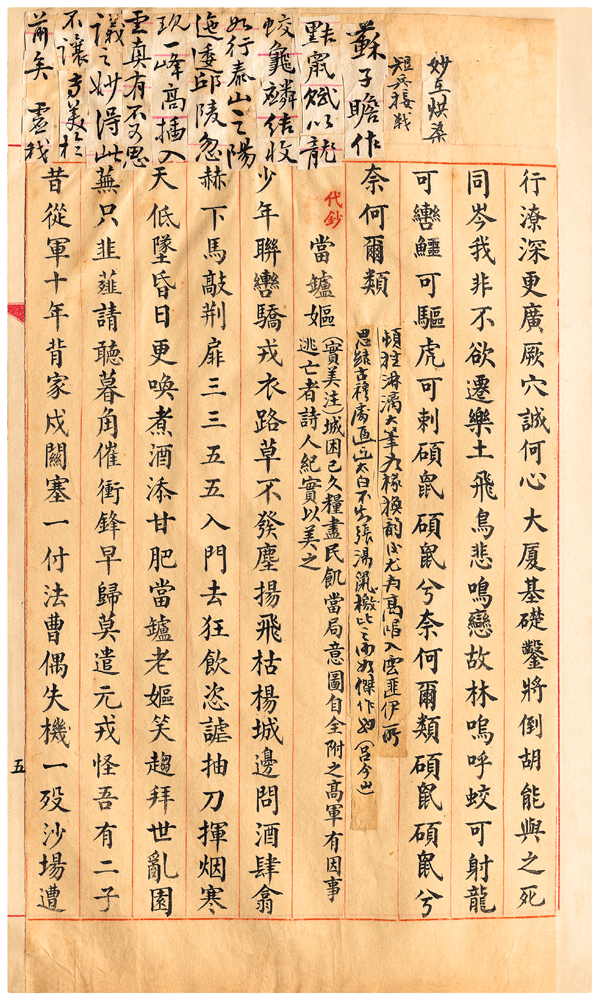 妙在烘染
短兵接戰
蘇子瞻作
黠鼠賦以龍
蛟龜麟結收
如行泰山之陽
迤逶邱陵忽
現一峰高插入
雲真有不可思
議之妙得此
不讓專美於
前矣
行潦深更廣厥穴誠何心大厦基礎鑿將倒胡能與之死
同岑我非不欲遷樂土飛鳥悲鳴戀故林嗚呼蛟可射龍
可轡鱷可驅虎可刺碩鼠碩鼠兮奈何爾類碩鼠碩鼠兮
奈何爾類
頓狂淋漓大筆為椽換韵後尤為高唱入雲
思結古穆處直逼太白不出張湯鼠檄此之雨如傑作也
代鈔
當鑪嫗
(實美注)城困已久糧盡民飢當局意圖自全附之高軍有因事
逃亡者詩人紀實以美之
少年聯轡驕戎衣路草不發塵揚飛枯楊城邊問酒肆翕
赫下馬敲荆扉三三五五入門去狂飲恣謔抽刀揮烟寒
天低墜昏日更喚煮酒添甘肥當鑪老嫗笑趨拜世亂園
蕪只韭薤請聽暮角催衝鋒早歸莫遣元戎怪吾有二子
昔從軍十年背家戍關塞一付法曹偶失機一歿沙場遭
五